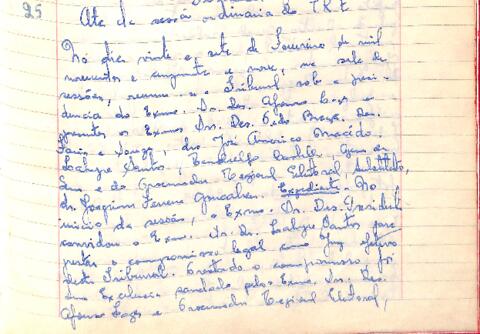 25
Ata da sessão ordinária do T.R.E.
No dia vinte e sete de Fevereiro de mil
novecentos e cinquenta e nove, na sala de
sessões, reuniu-se o Tribunal sob a presi-
dencia do Exmo. Sr. Des. Afonso Lages e
presentes os Exmos. Srs. Des.
Faria e Souza, drs. José Americo Macedo,
Santos,
e do Procurador Regional Eleitoral, Substituto,
dr. Joaquim Ferreira Gonçalves. Expediente. No
inicio da sessão, o Exmo. Sr. Des. Presidente
convidou o Exmo. Sr. Dr. Santos para
prestar o compromisso legal como Juiz efetivo
deste Tribunal. Prestado o compromisso foi
Sua Excelencia saudado pelos Exmos. Srs. Des.
Afonso Lages e Procurador Regional Eleitoral,